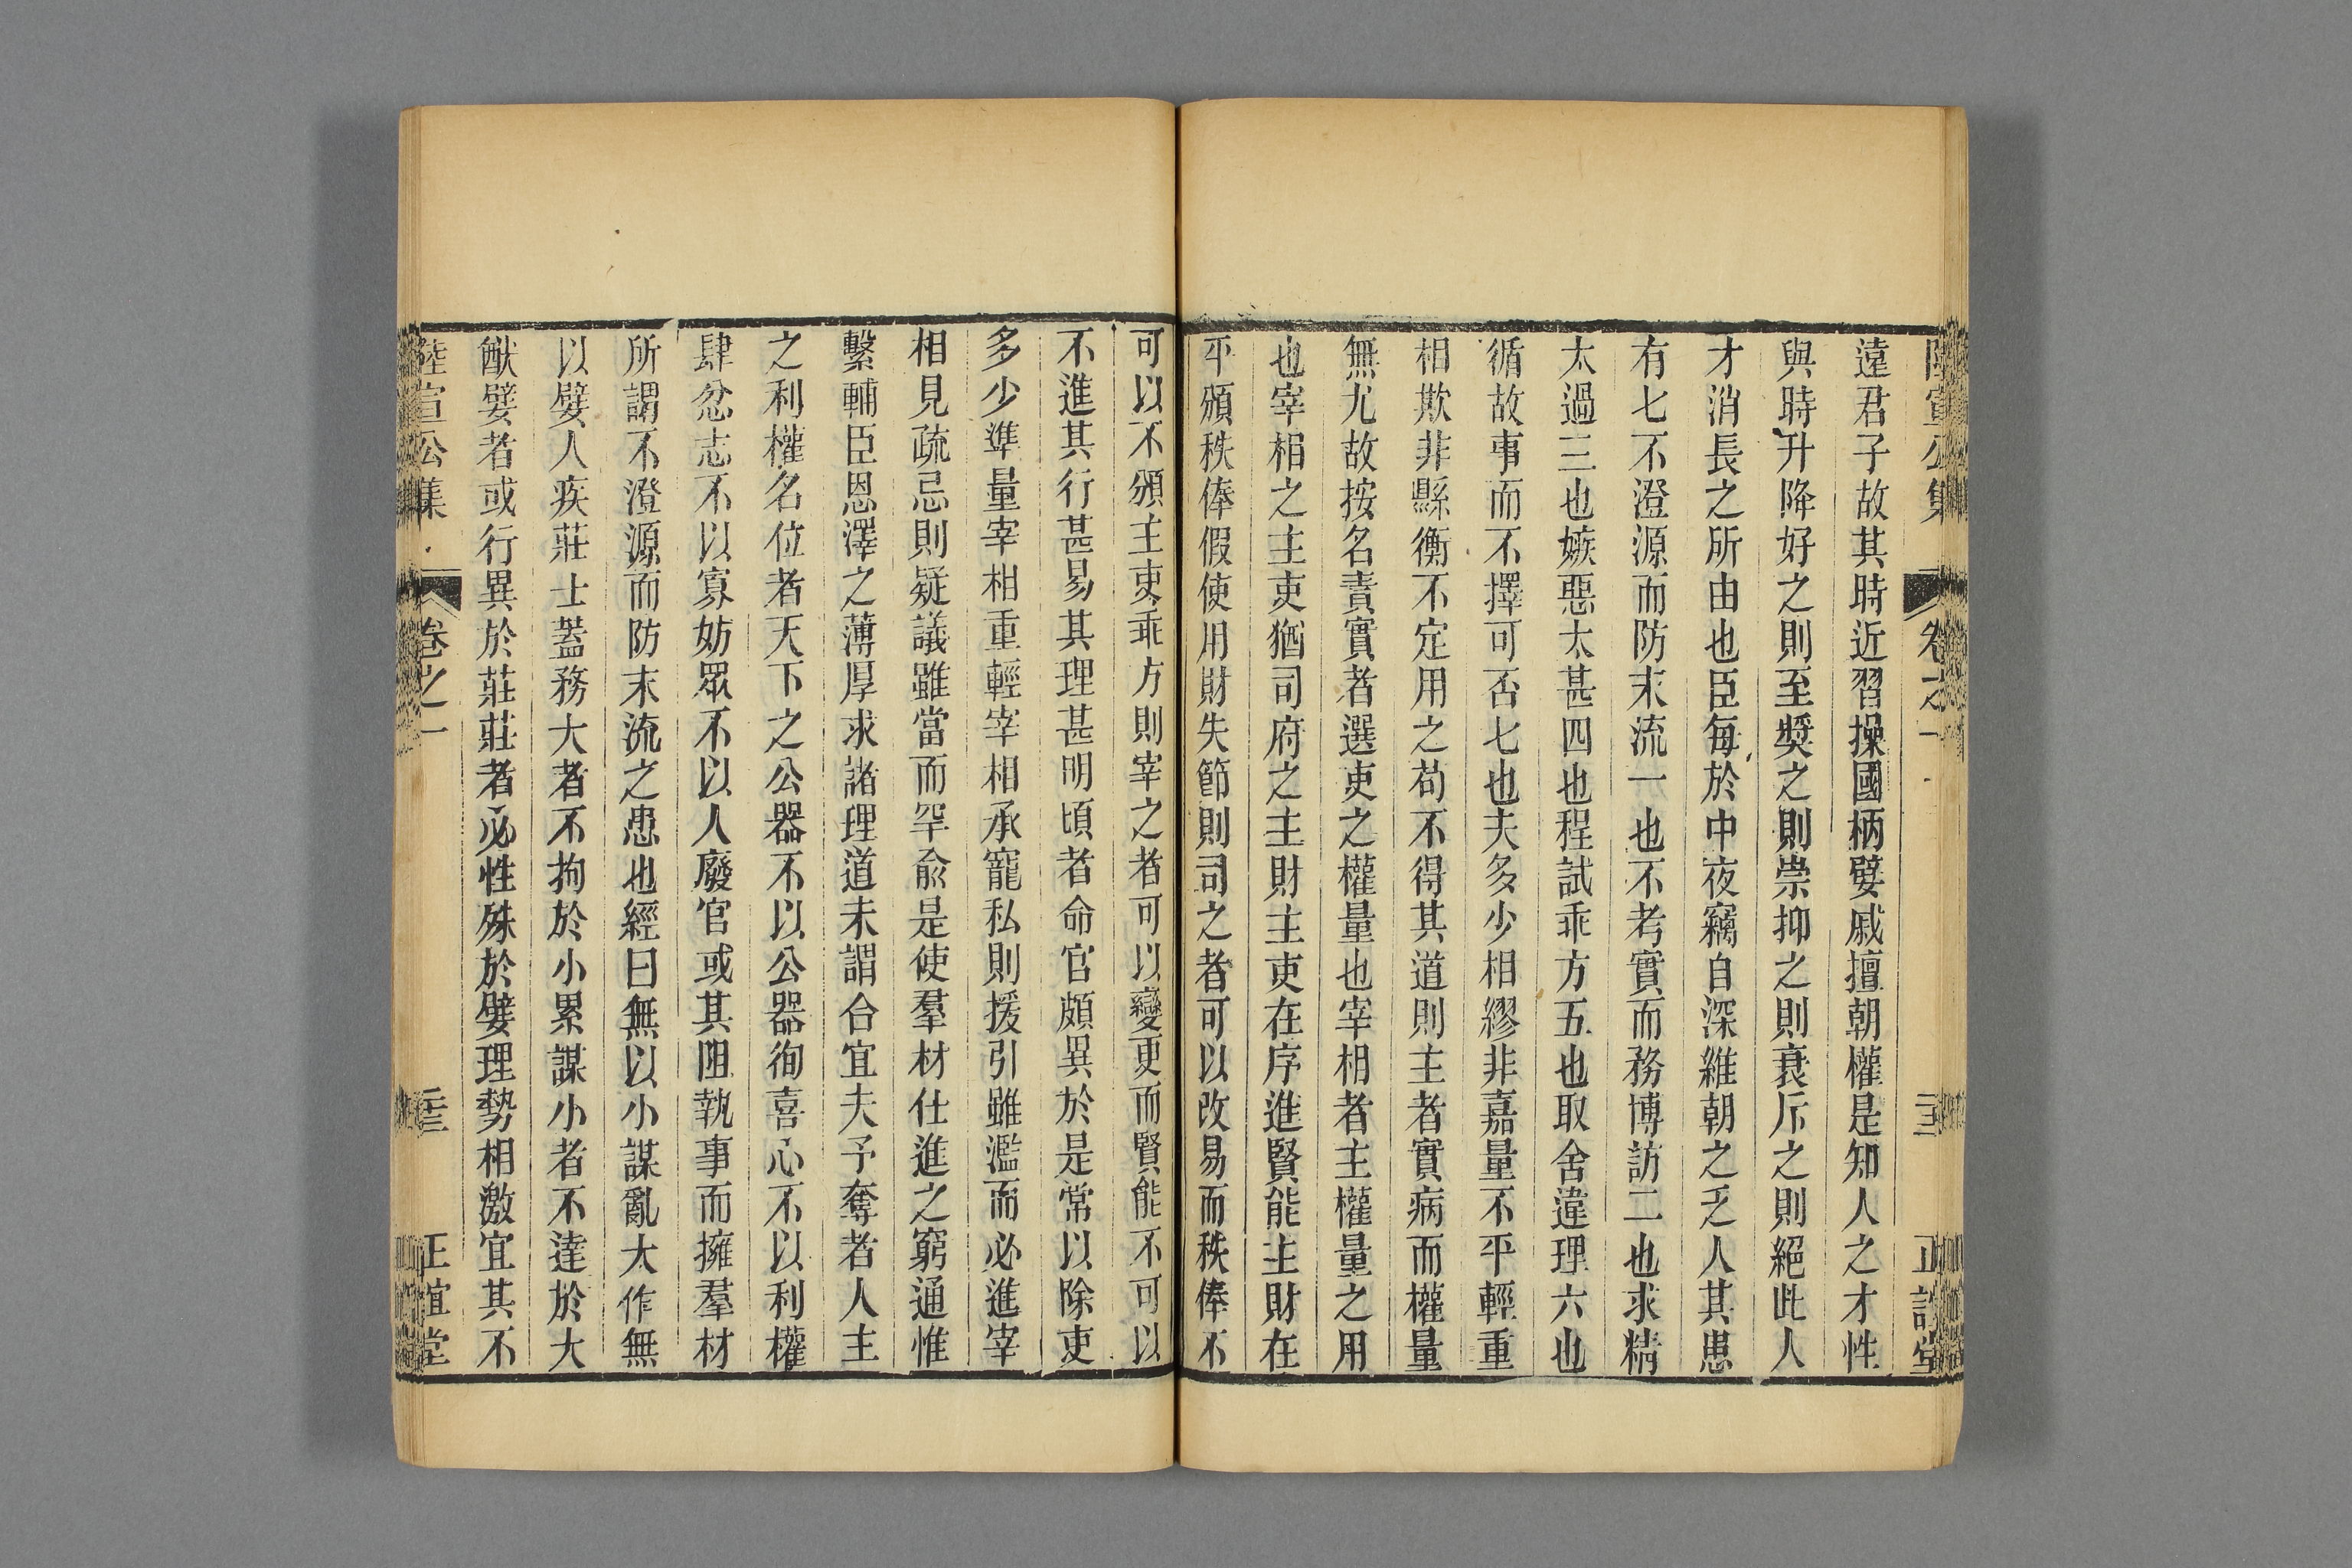 陸宣公集 卷之一 正誼堂
遠君子故其時近習操國柄嬖戚擅朝權是知人之才性
與時升降好之則至奬之則崇抑之則衰斥之則絕此人
才消長之所由也臣每於中夜竊自深維朝之乏人其患
有七不澄源而防末流一也不考實而務博訪二也求精
太過三也嫉惡太甚四也程試乖方五也取舍違理六也
循故事而不擇可否七也夫多少相繆非嘉量不平輕重
相欺非縣衡不定用之苟不得其道則主者實病而權量
無尤故按名責實者選吏之權量也宰相者主權量之用
也宰相之主吏猶司府之主財主吏在序進賢能主財在
平頒秩俸假使用財失節則司之者可以改易而秩俸不
可以不頒主吏乖方則宰之者可以變更而賢能不可以
不進其行甚易其理甚明頃者命官頗異於是常以除吏
多少準量宰相重輕宰相承寵私則援引雖濫而必進宰
相見疏忌則疑議雖當而罕兪是使羣材仕進之窮通惟
繫輔臣恩澤之薄厚求諸理道未謂合宜夫予奪者人主
之利權名位者天下之公器不以公器徇喜心不以利權
肆忿志不以寡妨眾不以人廢官或其阻執事而擁羣材
所謂不澄源而防末流之患也經曰無以小謀亂大作無
以嬖人疾莊士蓋務大者不拘於小累謀小者不達於大
猷嬖者或行異於莊莊者必性殊於嬖理勢相激宜其不
陸宣公集 卷之一 正誼堂